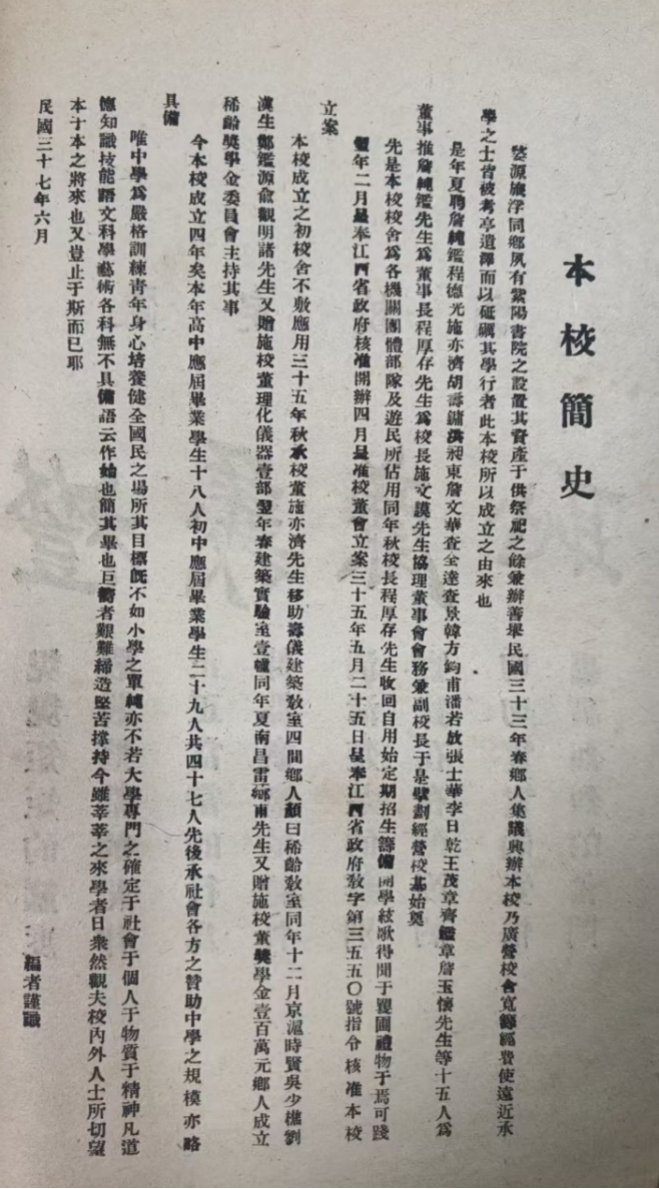 本校簡史
婺源旅浮同鄉夙有紫陽書院之設置其資產于供祭祀之餘兼辦善舉民國三十三年春鄉人集議興辦本校乃廣營校舍寬籌經費使遠近承
學之士皆被考亭遺澤而以砥礪其學行者此本校所以成立之由來也
是年夏聘詹純鑑程德光施亦濟胡壽鏞洪昶東詹文華查全達查景韓方鈞甫潘若啟張士華李日乾王茂章齊鑑章詹玉懷先生等十五人爲
董事推詹純鑑先生爲董事長程厚存先生爲校長施文謨先生協理董事會會務兼副校長于是擘劃經營校基始奠
先是本校校舍爲各機關團體部隊及遊民所佔用同年秋校長程厚存先生收回自用始定期招生籌備開學絃歌得聞于矍圃禮物于焉可踐
翌年二月呈奉江西省政府核准開辦四月呈准校董會立案三十五年五月二十五日呈奉江西省政府敎字第三五五〇號指令核准本校
立案
本校成立之初校舍不敷應用三十五年秋承校董施亦濟先生移助壽儀建築敎室四間鄉人顏曰稀齡敎室同年十二月京滬時賢吳少樵劉
漢生鄭鑑源俞觀明諸先生又贈施校董理化儀器壹部翌年春建築實驗室壹幢同年夏南昌雷󠄀先生又贈施校董獎學金壹百萬元鄉人成立
稀齡獎學金委員會主持其事
今本校成立四年矣本年高中應屆畢業學生十八人初中應屆畢業學生二十九人共四十七人先後承社會各方之贊助中學之規模亦略
具備
唯中學爲嚴格訓練青年身心培養健全國民之場所其目標旣不如小學之單純亦不若大學專門之確定于社會于個人于物質于精神凡道
德知識技能語文科學藝術各科無不具備語云作始也簡其畢也巨嚮者艱難締造堅苦撐持今雖莘莘之來學者日衆然觀夫校內外人士所切望
本于本之將來也又豈止于斯而已耶
民國三十七年六月
編者謹識